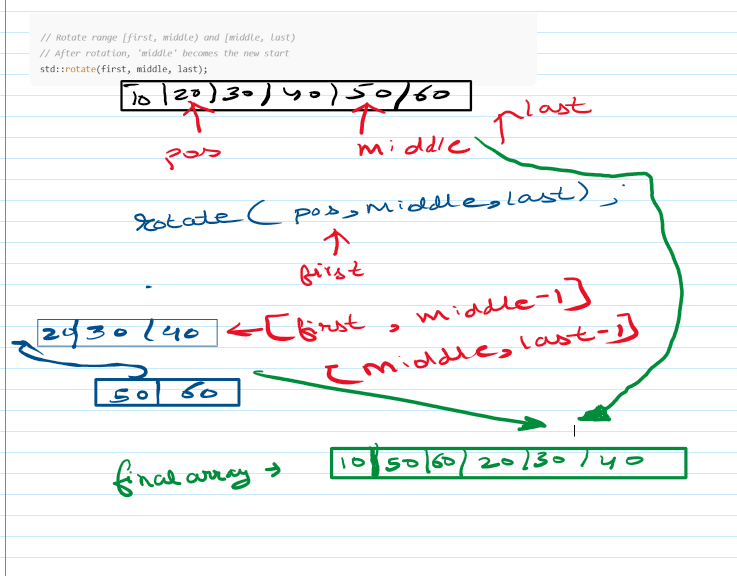 // Rotate range [first, middle) and [middle, last)
// After rotation, 'middle' becomes the new start
std::rotate(first, middle, last);
10 | 20 | 30 | 40 | 50 | 60
last
pos
middle
rotate ( pos, middle, last) ;
first
20 | 30 | 40
[first , middle-1]
[middle, last-1]
50 | 60
final array → 10 | 50 | 60 | 20 | 30 | 40